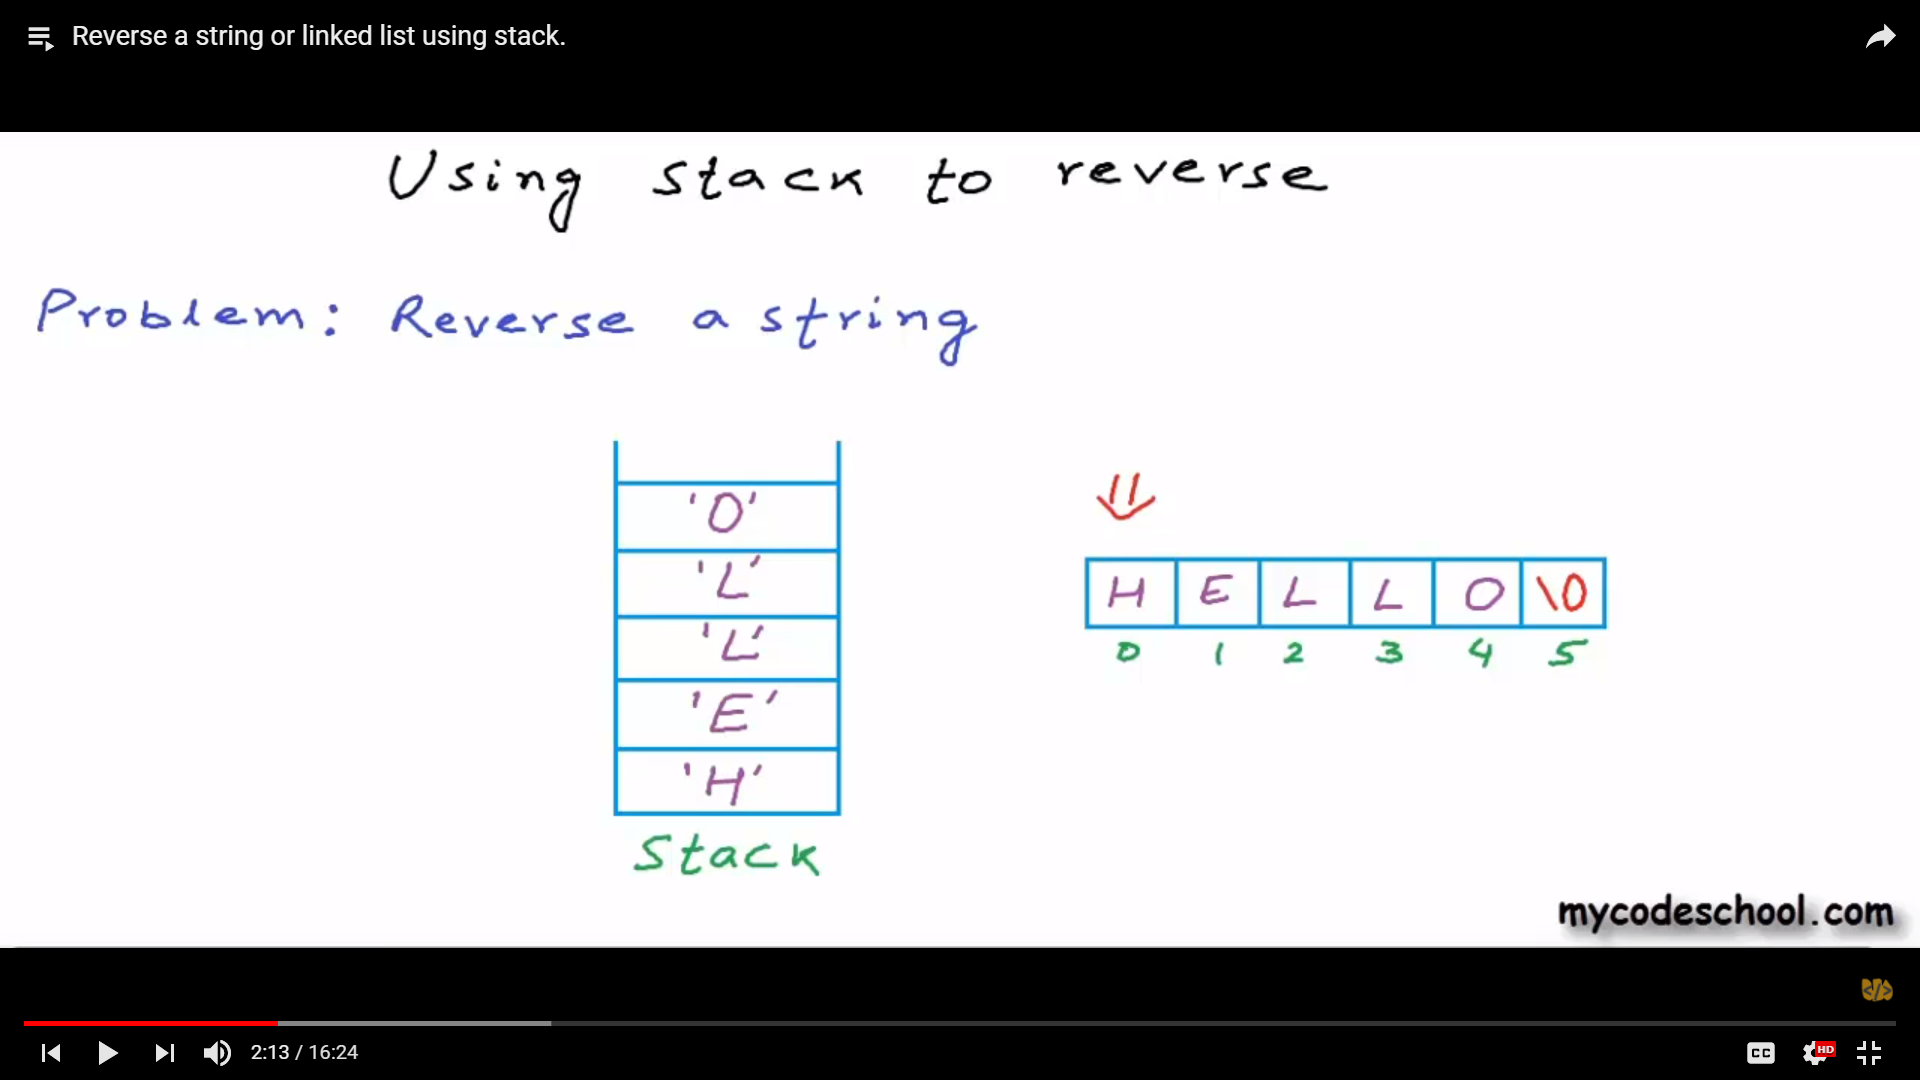 Reverse a string or linked list using stack.
Using stack to reverse
Problem: Reverse a string
'O'
'L'
'L'
'E'
'H'
Stack
H E L L O \0
0 1 2 3 4 5
mycodeschool.com
</>
2:13 / 16:24
CC
HD